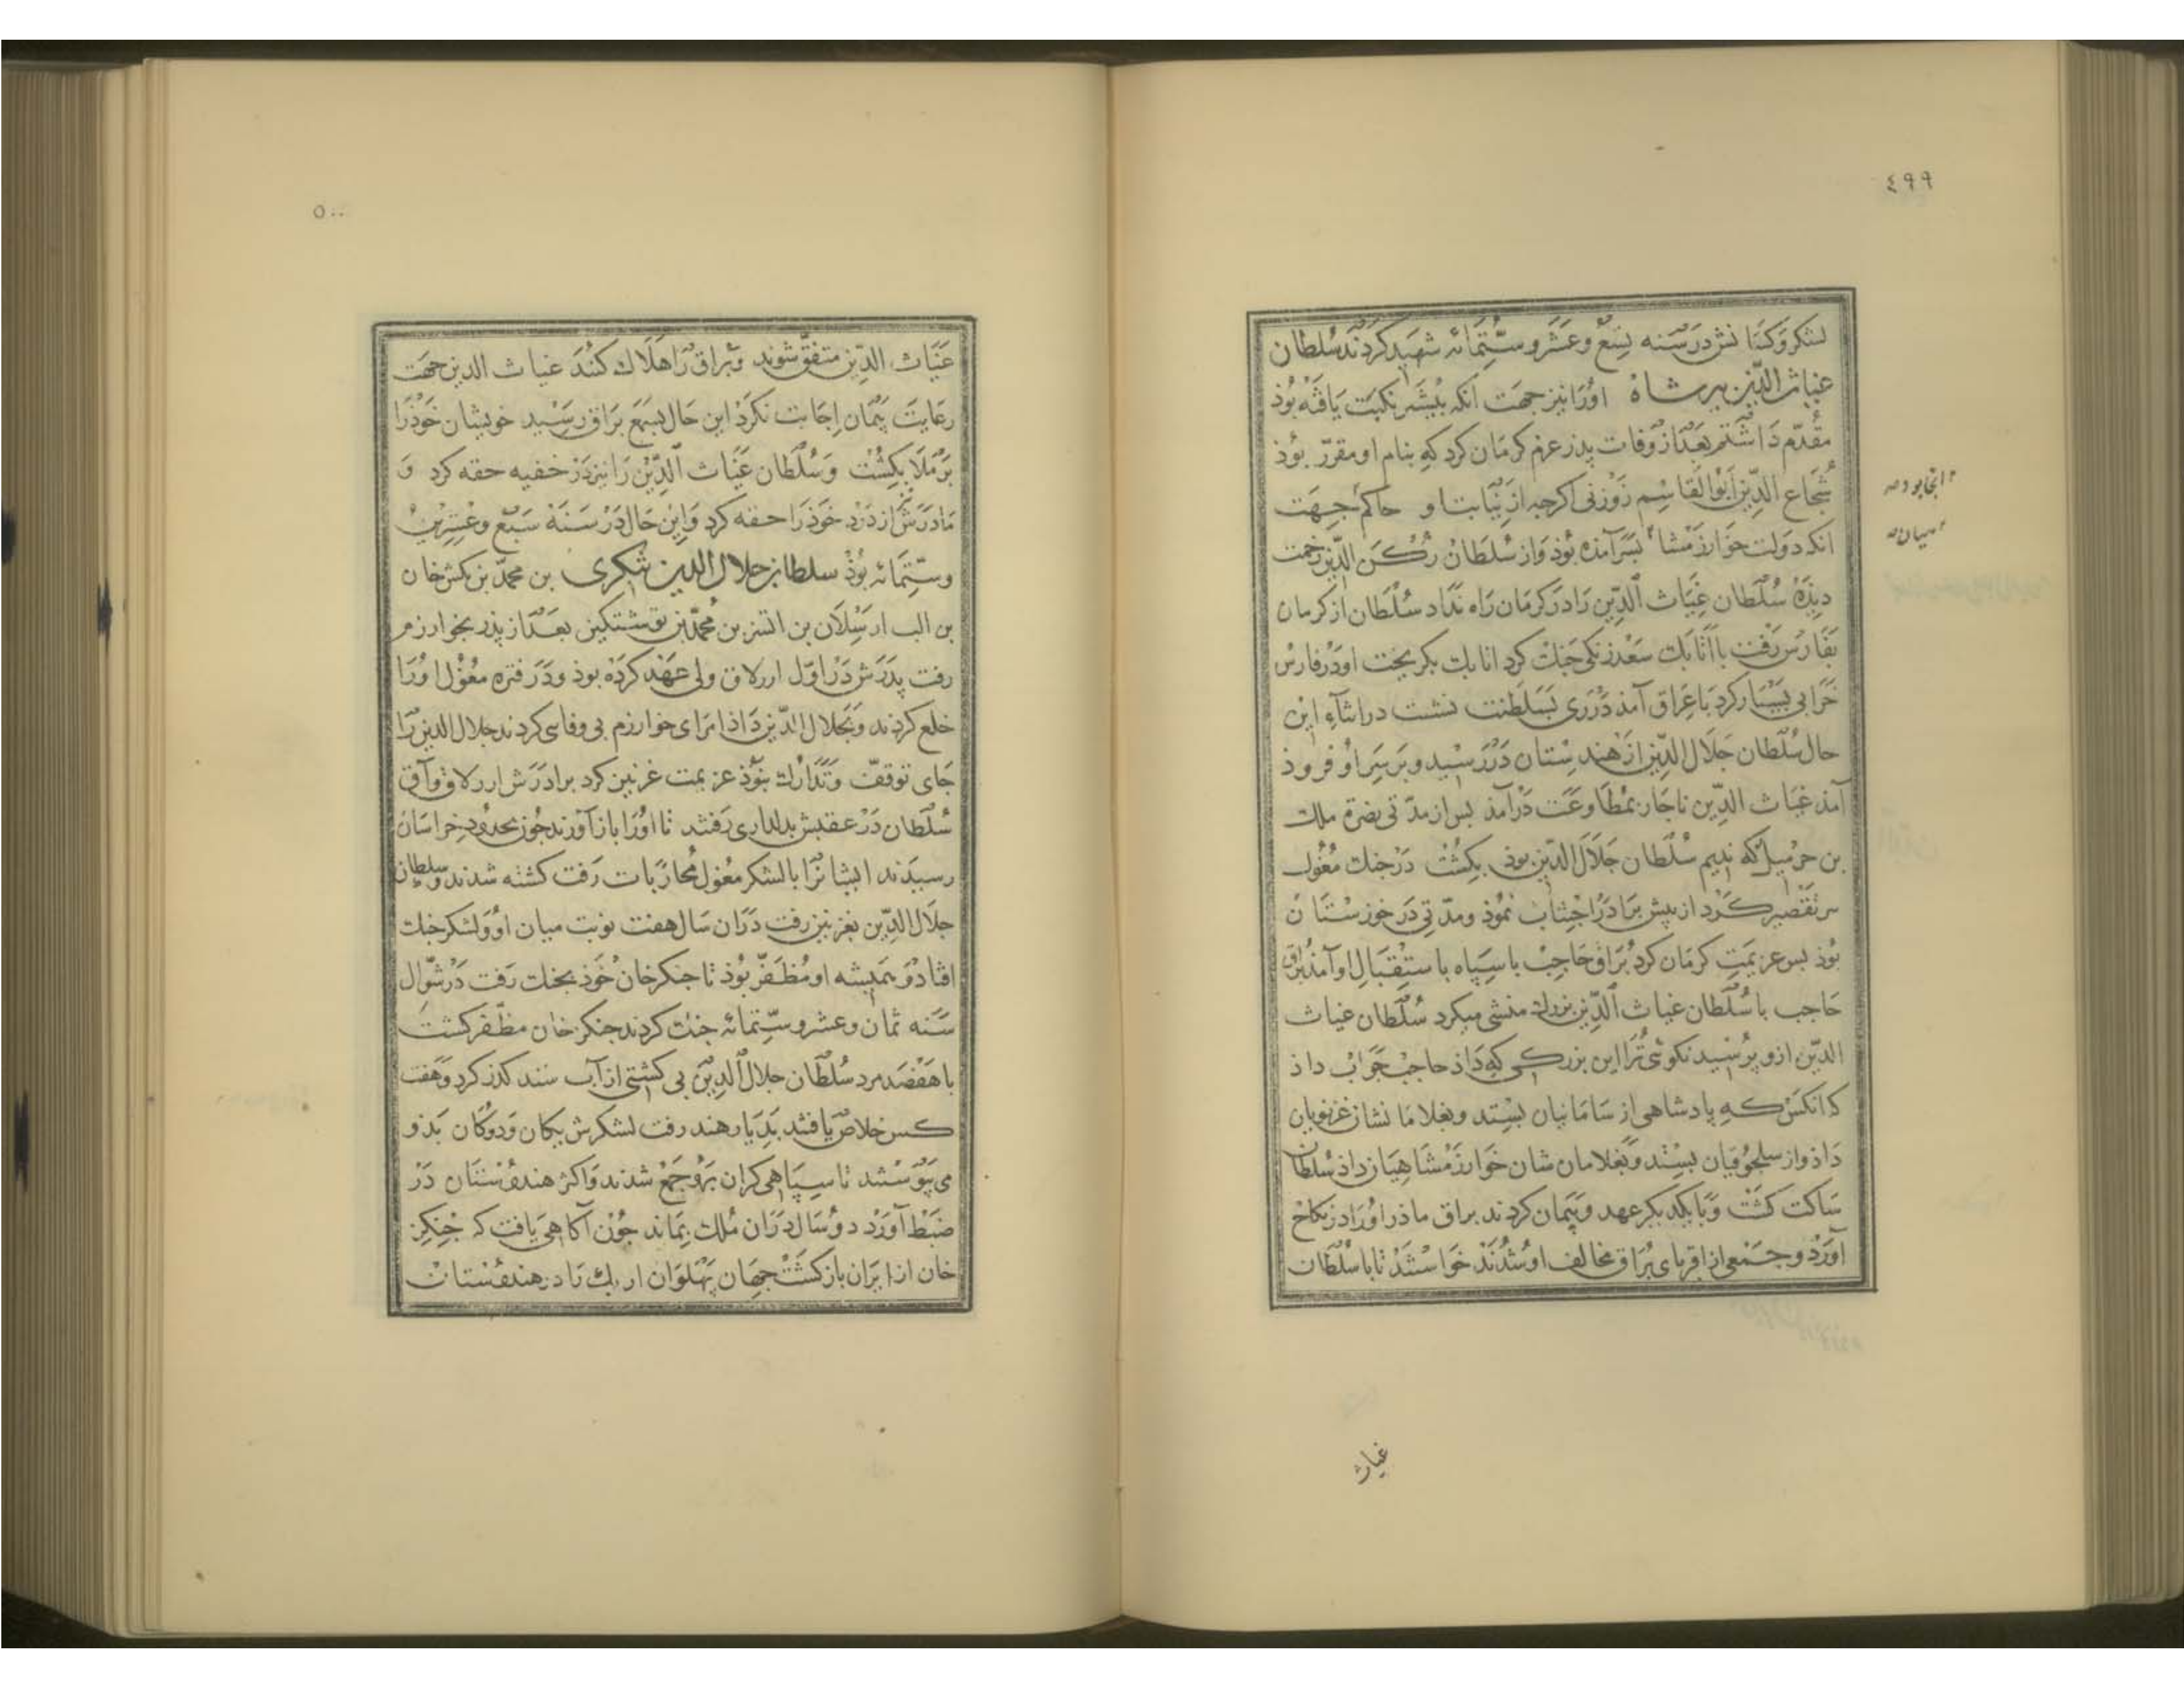 ٤٩٩
لشکر وکسانش در سنه تسع وعشر وستمائه شهید کردند سلطان
غیاث الدین بیر شاه اورا نیز جهت انکه بیشتر نکبت یافته بوذ
مقدم داشتم بعد از وفات پدر عزم کرمان کرد که بنام او مقرر بوذ
شجاع الدین ابوالقاسم زوزنی اکرجه از نیابت او حاکم جهت
انجا بود صح
انکه دولت خوارزمشاه بسر آمده بوذ واز سلطان رکن الدین زحمت
میان
دیذه سلطان غیاث الدین را در کرمان راه نداد سلطان از کرمان
بفارس رفت با اتابک سعد زنکی جنک کرد اتابک بکریخت او در فارس
خرابی بسیار کرد با عراق آمذ در ری بسلطنت نشست در اثناء این
حال سلطان جلال الدین از هندستان در رسید و بر سر او فروذ
آمذ غیاث الدین ناجار بمطاوعت درآمذ بس از مدتی نضرة ملک
بن حرمیل که ندیم سلطان جلال الدین بوذ بکشت در جنک مغول
سر تقصیر کرد از پیش برادر اجتناب نموذ ومدتی در خوزستان
بوذ بس عزیمت کرمان کرد براق حاجب با سپاه باستقبال او آمذ براق
حاجب با سلطان غیاث الدین بزرک منشی میکرد سلطان غیاث
الدین ازو پرسید نکوئی ترا این بزرکی که داذ حاجب جواب داذ
که انکس که پادشاهی از سامانیان بستد وبغلامانشان غزنویان
داذ واز سلجوقیان بستد وبغلامان شان خوارزمشاهیان داذ سلطان
ساکت کشت وبا یکدیکر عهد وپیمان کردند براق ماذر اورا در نکاح
آورد وجمعی از اقربای براق مخالف او شدند خواستند تا با سلطان
غیاث
٥٠٠
غیاث الدین متفق شوند وبراق را هلاک کنند غیاث الدین جهت
رعایت پیمان اجابت نکرد این حال بسمع براق رسید خویشان خوذرا
برملا بکشت وسلطان غیاث الدین را نیز در خفیه حقه کرد و
مادرش از درد خوذ را حقه کرد واین حال در سنة سبع وعشرین
وستمائه بوذ سلطان جلال الدین منکبری بن محمد بن تکش خان
بن الب ارسلان بن اتسز بن محمد بن نوشتکین بعد از پذر بخوارزم
رفت پدرش در اول ارزلاق ولی عهد کرده بوذ ودر فتره مغول اورا
خلع کردند وبجلال الدین داذ امرای خوارزم بی وفایی کردند جلال الدین را
جای توقف وتدارک نبوذ عزیمت غزنین کرد برادرش ارزلاق وآق
سلطان در عقبش بدلداری رفتند تا اورا باز آورند جون بحدود خراسان
رسیدند ایشانرا با لشکر مغول محاربات رفت کشته شدند وسلطان
جلال الدین بغزنین رفت دران سال هفت نوبت میان او ولشکر جنک
افتاد وهمیشه او مظفر بوذ تا جنکز خان خوذ بجنک رفت در شوال
سنه ثمان وعشر وستمائه جنک کردند جنکز خان مظفر کشت
با هفصد مرد سلطان جلال الدین بی کشتی از آب سند کذر کرد وهفت
کس خلاص یافتند بدیار هند رفت لشکرش یکان ودوکان بذو
می پیوستند تا سپاهی کران برو جمع شدند واکثر هندوستان در
ضبط آورد دو سال دران ملک بماند جون آکاهی یافت که جنکز
خان از ایران بازکشت جهان پهلوان ازبک را در هندوستان